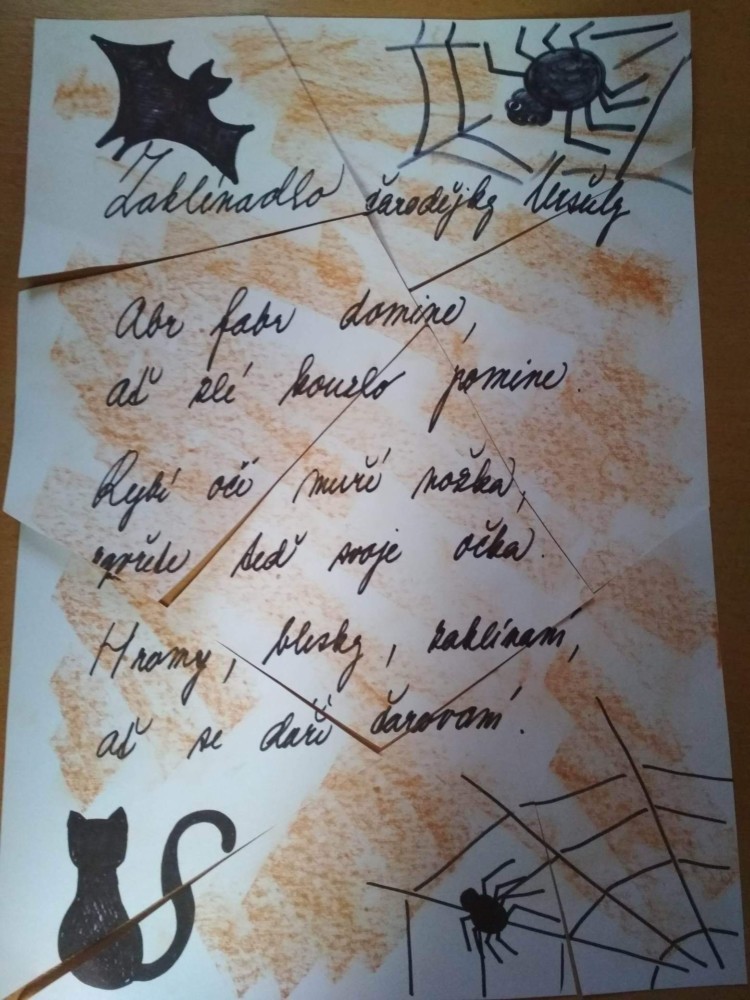 Zaklínadlo čarodějky Uršuly
Abr fabr domine,
ať zlé kouzlo pomine.
Rybí oči muří nožka,
zavřete teď svoje očka.
Hromy, blesky, zaklínaní,
ať se daří čarovaní.